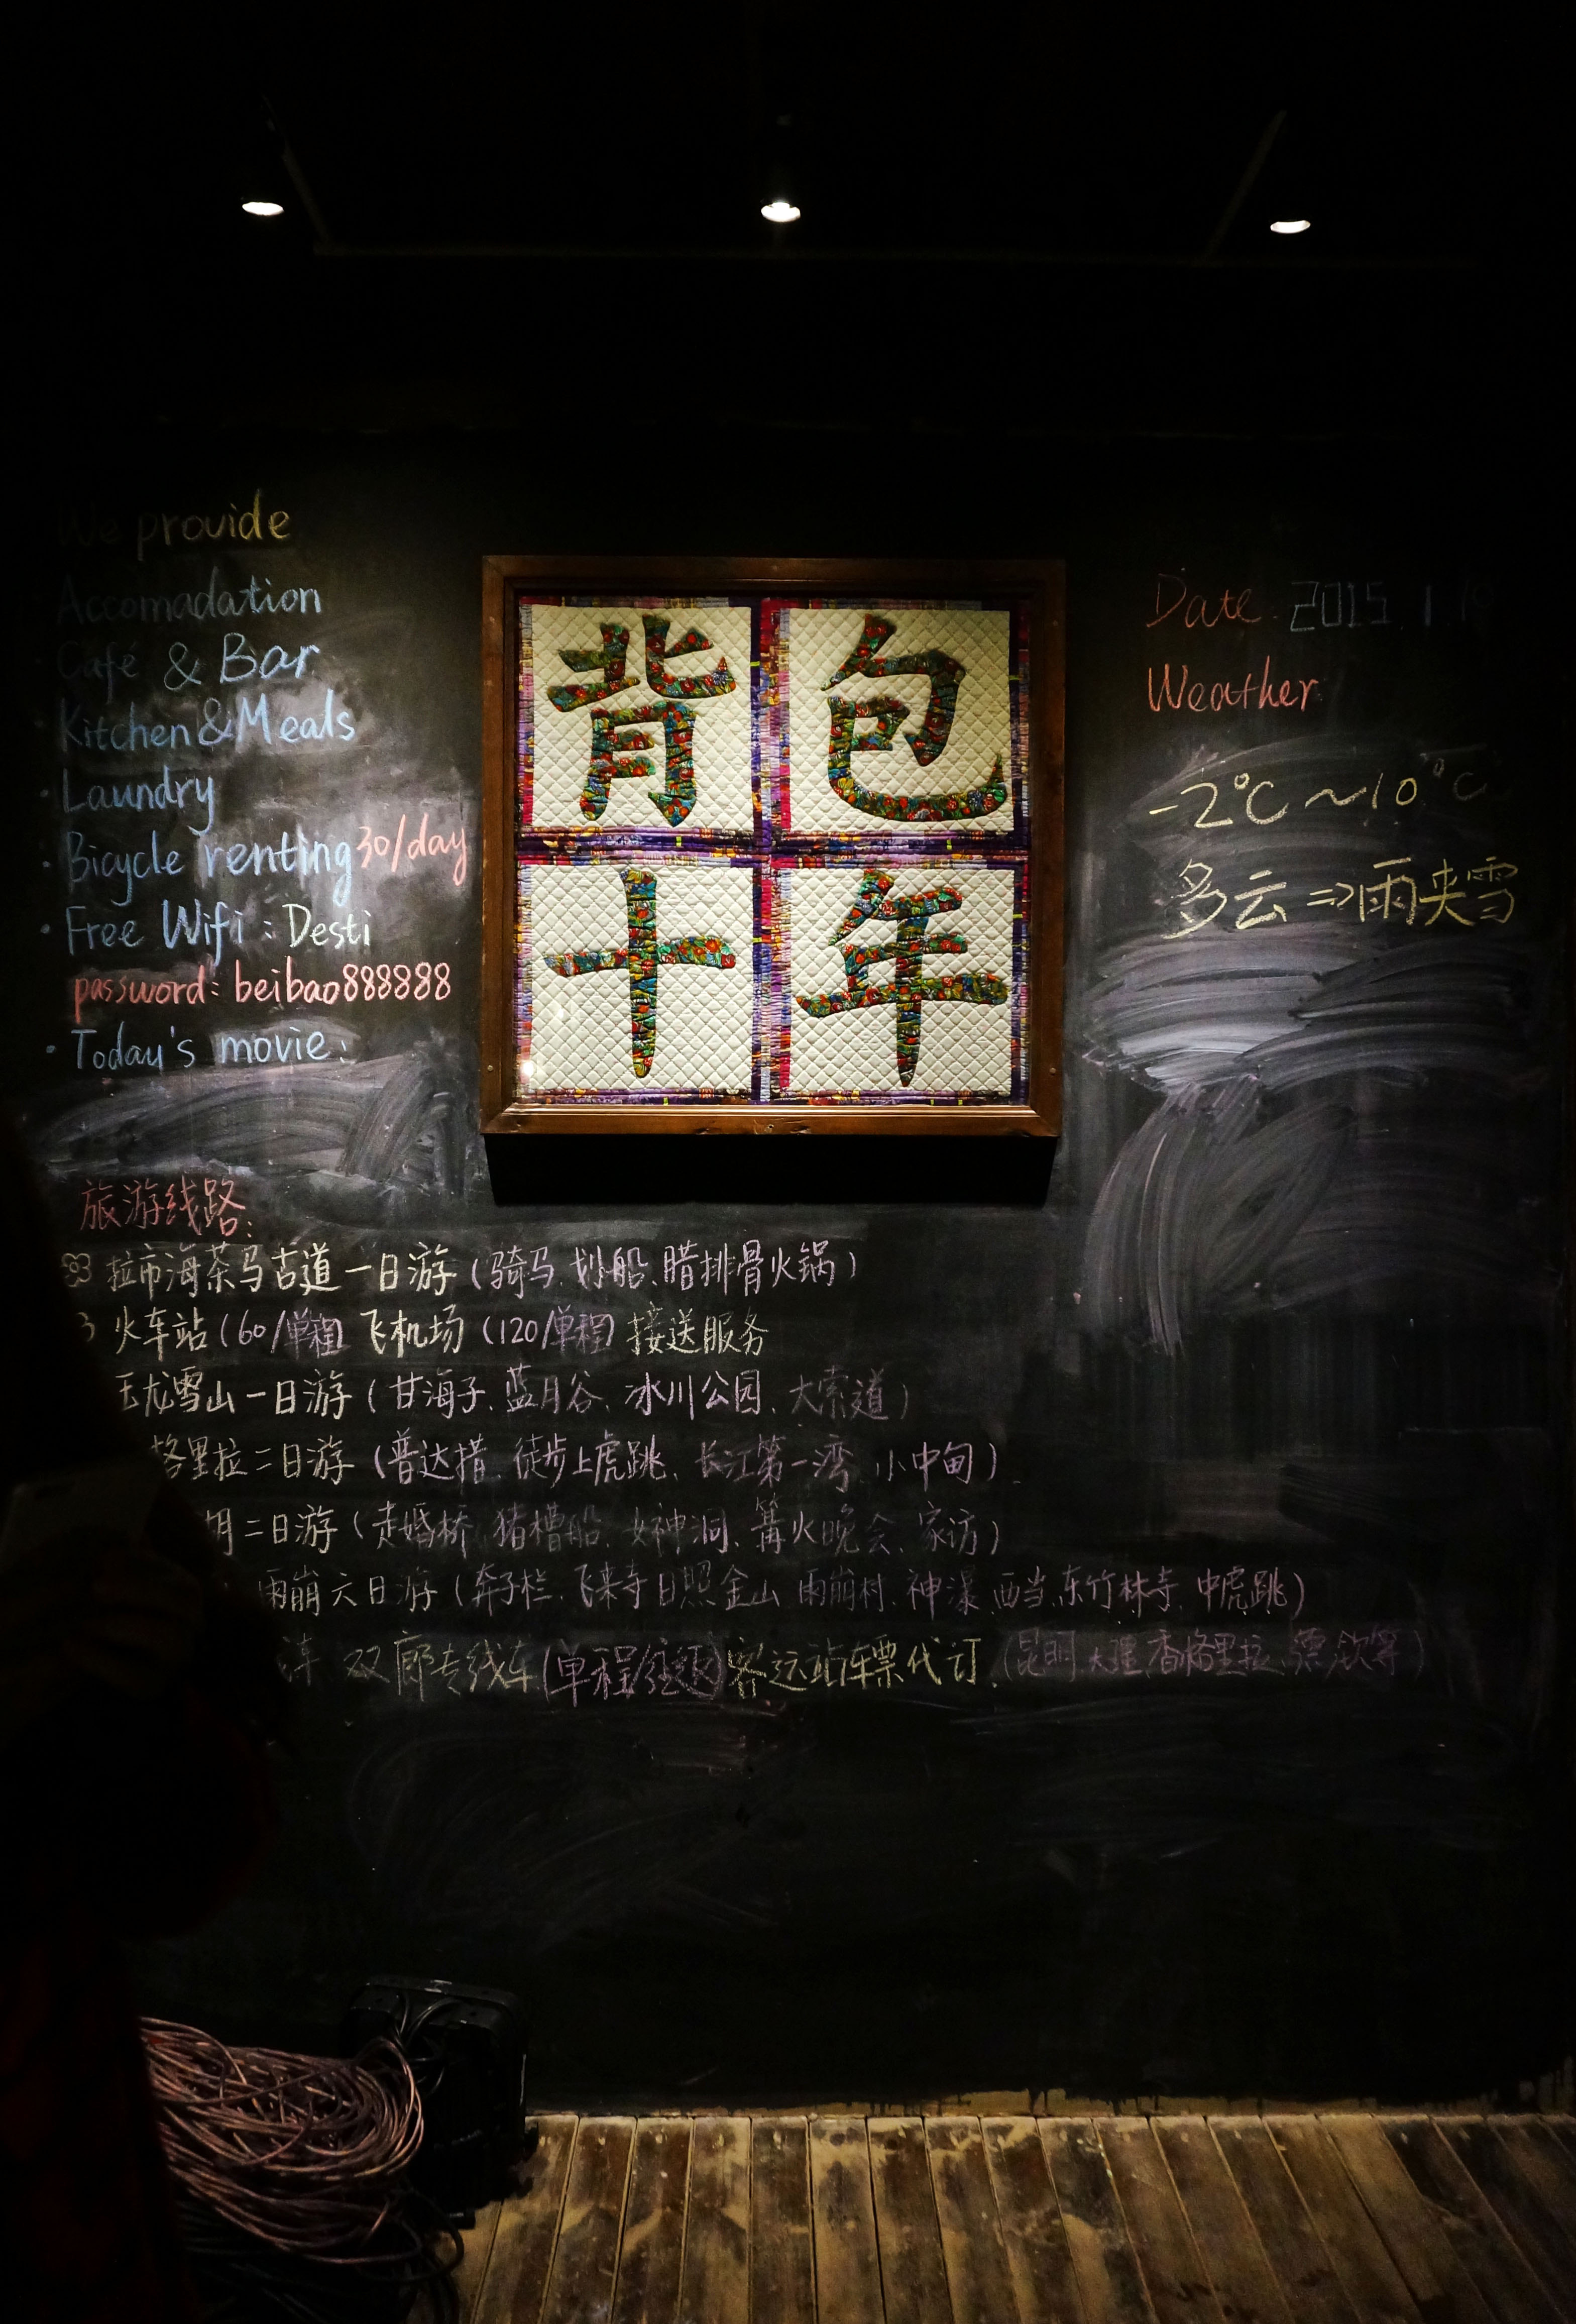 We provide
Accomadation
Café & Bar
Kitchen & Meals
· Laundry
· Bicycle renting 30/day
· Free Wifi : Desti
password: beibao888888
· Today's movie:
背包
十年
Date 2015.1.1
Weather
-2℃~10℃
多云⇒雨夹雪
旅游线路:
拉市海茶马古道一日游(骑马、划船、腊排骨火锅)
火车站(60/单程) 飞机场(120/单程) 接送服务
玉龙雪山一日游(甘海子、蓝月谷、冰川公园、大索道)
格里拉二日游(普达措、徒步上虎跳、长江第一湾、小中甸)
二日游(走婚桥、猪槽船、女神洞、篝火晚会、家访)
雨崩六日游(奔子栏、飞来寺日照金山、雨崩村、神瀑、西当、东竹林寺、中虎跳)
双廊专线车(单程/往返)客运站车票代订.(昆明、大理、香格里拉、